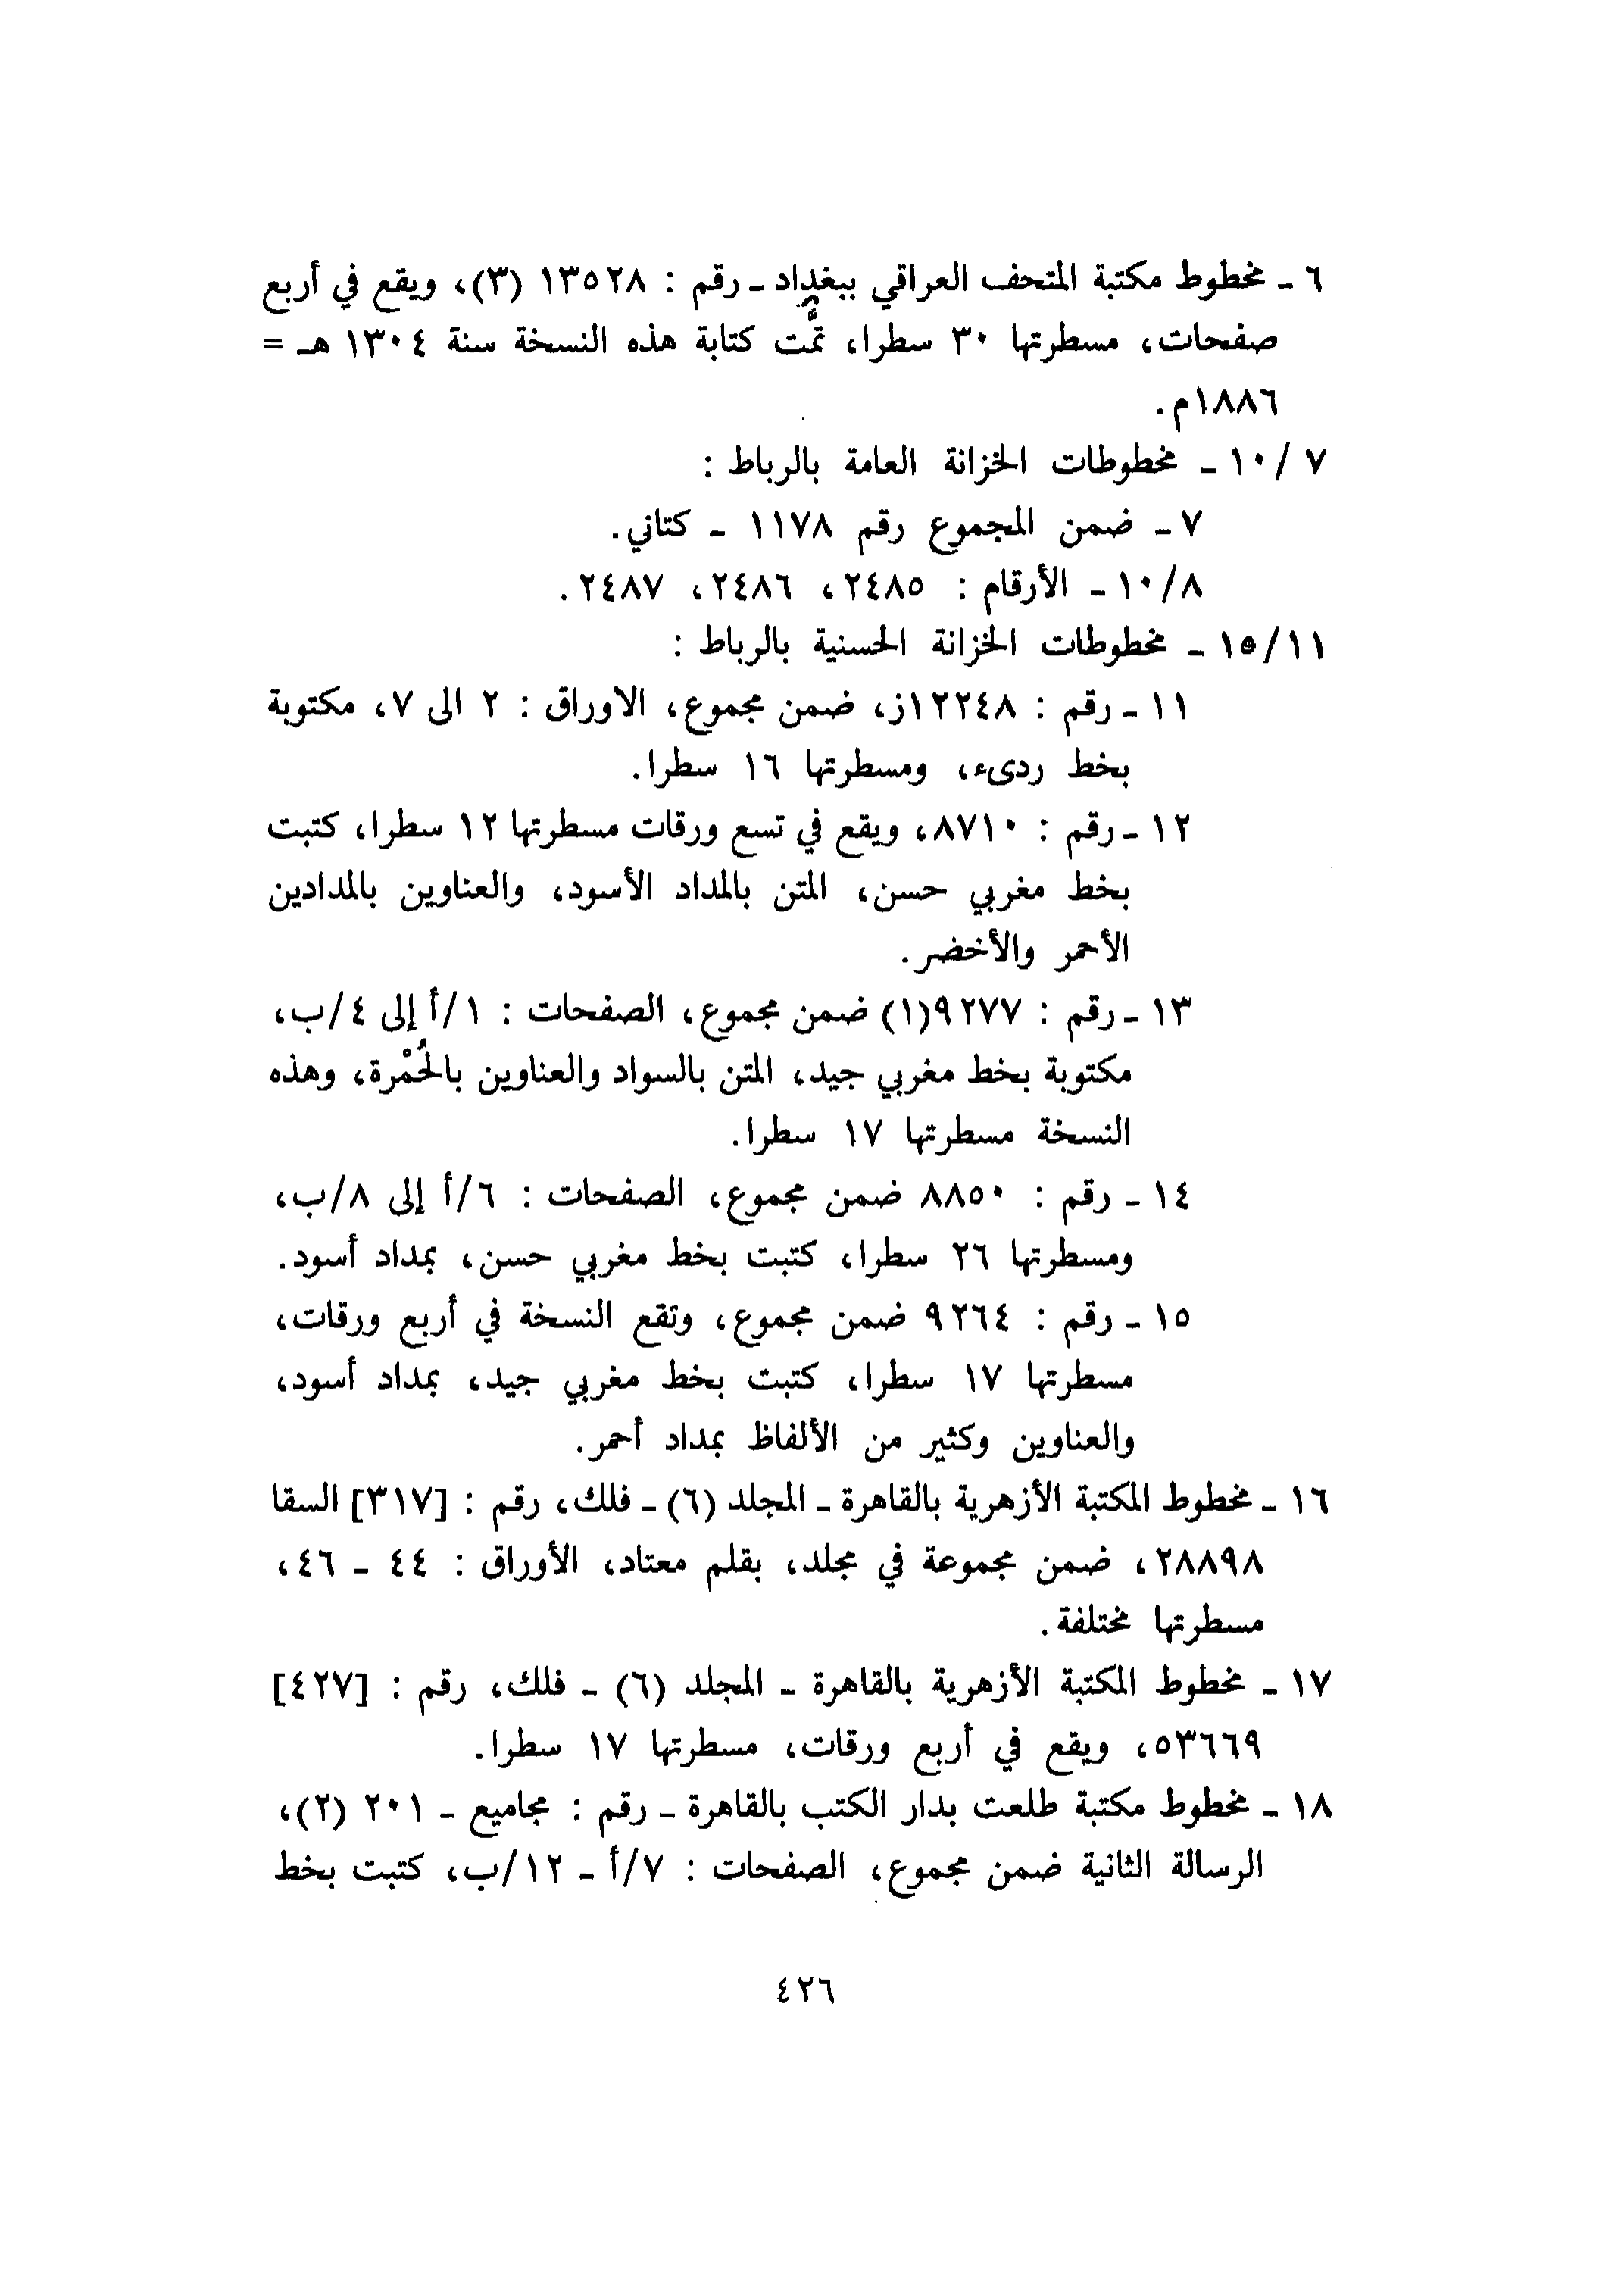 ٦ - مخطوط مكتبة المتحف العراقي ببغداد - رقم : ١٣٥٢٨ (٣)، ويقع في أربع
صفحات، مسطرتها ٣٠ سطرا، تمَّت كتابة هذه النسخة سنة ١٣٠٤ هـ =
١٨٨٦م.
١٠/٧ - مخطوطات الخزانة العامة بالرباط :
٧ - ضمن المجموع رقم ١١٧٨ - كتاني.
١٠/٨ - الأرقام : ٢٤٨٥، ٢٤٨٦، ٢٤٨٧.
١٥/١١ - مخطوطات الخزانة الحسنية بالرباط :
١١ - رقم : ١٢٢٤٨ز، ضمن مجموع، الاوراق : ٢ الى ٧، مكتوبة
بخط ردىء، ومسطرتها ١٦ سطرا.
١٢ - رقم : ٨٧١٠، ويقع في تسع ورقات مسطرتها ١٢ سطرا، كتبت
بخط مغربي حسن، المتن بالمداد الأسود، والعناوين بالمدادين
الأحمر والأخضر.
١٣ - رقم : ٩٢٧٧(١) ضمن مجموع، الصفحات : ١/أ إلى ٤/ب،
مكتوبة بخط مغربي جيد، المتن بالسواد والعناوين بالحُمْرة، وهذه
النسخة مسطرتها ١٧ سطرا.
١٤ - رقم : ٨٨٥٠ ضمن مجموع، الصفحات : ٦/أ إلى ٨/ب،
ومسطرتها ٢٦ سطرا، كتبت بخط مغربي حسن، بمداد أسود.
١٥ - رقم : ٩٢٦٤ ضمن مجموع، وتقع النسخة في أربع ورقات،
مسطرتها ١٧ سطرا، كتبت بخط مغربي جيد، بمداد أسود،
والعناوين وكثير من الألفاظ بمداد أحمر.
١٦ - مخطوط المكتبة الأزهرية بالقاهرة - المجلد (٦) - فلك، رقم : [٣١٧] السقا
٢٨٨٩٨، ضمن مجموعة في مجلد، بقلم معتاد، الأوراق : ٤٤ - ٤٦،
مسطرتها مختلفة.
١٧ - مخطوط المكتبة الأزهرية بالقاهرة - المجلد (٦) - فلك، رقم : [٤٢٧]
٥٣٦٦٩، ويقع في أربع ورقات، مسطرتها ١٧ سطرا.
١٨ - مخطوط مكتبة طلعت بدار الكتب بالقاهرة - رقم : مجاميع - ٢٠١ (٢)،
الرسالة الثانية ضمن مجموع، الصفحات : ٧/أ - ١٢/ب، كتبت بخط
٤٢٦